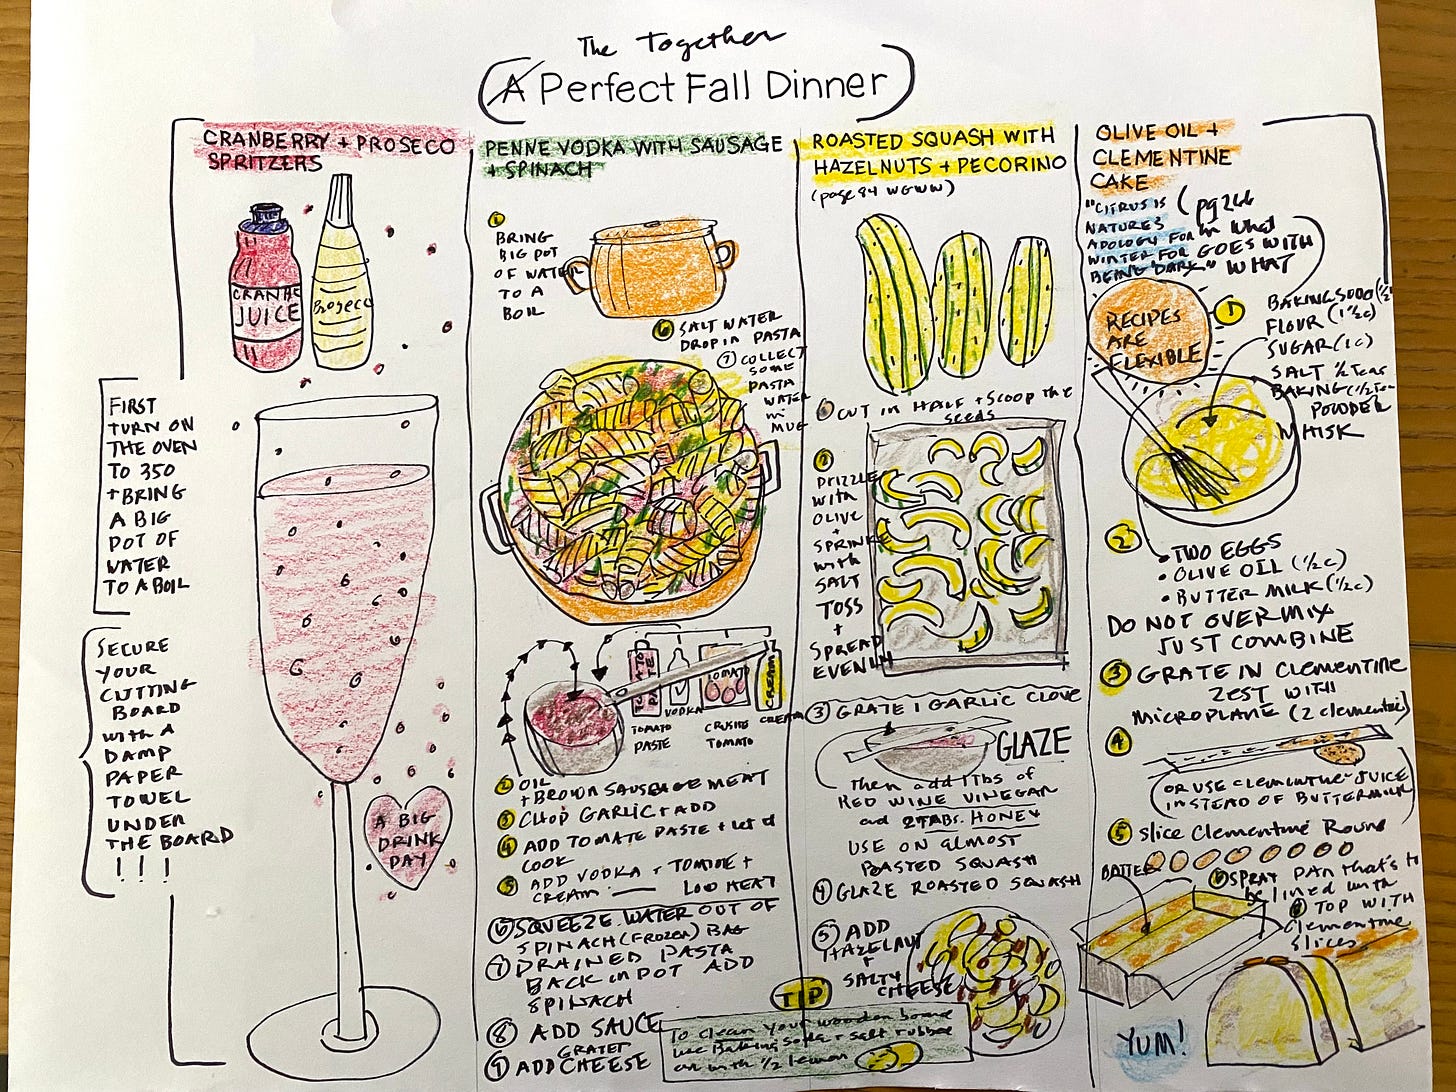 The Together
A Perfect Fall Dinner
CRANBERRY + PROSECO
SPRITZERS
CRANBE
JUICE
Proseco
FIRST
TURN ON
THE OVEN
TO 350
+ BRING
A BIG
POT OF
WATER
TO A BOIL
SECURE
YOUR
CUTTING
BOARD
with A
DAMP
PAPER
TOWEL
UNDER
THE BOARD
! ! !
A BIG
DRINK
DAY
PENNE VODKA WITH SAUSAGE
+ SPINACH
1
BRING
BIG POT
OF WATER
TO A
BOIL
6 SALT WATER
DROP IN PASTA
7 COLLECT
SOME
PASTA
WATER
in
MUG
TOMATO
PASTE
VODKA
TOMATO
CREAM
TOMATO
PASTE
CRUSHED
TOMATO
CREAM
2 OIL
+ BROWN SAUSAGE MEAT
3 CHOP GARLIC + ADD
4 ADD TOMATE PASTE + let it
COOK
5 ADD VODKA +
CREAM LOW HEAT
6 SQUEEZE WATER OUT OF
SPINACH (FROZEN) BAG
7 DRAINED PASTA
BACK in POT ADD
SPINACH
8 ADD SAUCE
9 ADD GRATED
CHEESE
ROASTED SQUASH WITH
HAZELNUTS + PECORINO
(page 84 WGWW)
CUT IN HALF + SCOOP the
seeds
DRIZZLE
with
OLIVE
+
SPRINKE
with
SALT
TOSS
+
SPREAD
EVENLY
3 GRATE 1 GARLIC CLOVE
GLAZE
Then add 1 Tbs of
RED WINE VINEGAR
and 2 TABS. HONEY
USE ON almost
ROASTED SQUASH
4 GLAZE ROASTED SQUASH
5 ADD
HAZELNUT
+
SALTY
CHEESE
TIP
To clean your wooden board
use Baking soda + salt rubbed
on with 1/2 lemon
OLIVE OIL +
CLEMENTINE
CAKE
"CITRUS IS
NATURE'S
APOLOGY FOR
WINTER FOR
BEING DARK"
(pg 266
in What
GOES WITH
WHAT
RECIPES
ARE
FLEXIBLE
1
BAKING SODA (1/2
FLOUR (1 1/2 c)
SUGAR (1c)
SALT 1/2 Teas
BAKING (1 1/2 Tea
POWDER
WHISK
2
• TWO EGGS
• OLIVE OIL (1/2 c)
• BUTTER MILK (1/2 c)
DO NOT OVERMIX
JUST COMBINE
3 GRATE IN Clementine
ZEST WITH
MICROPLANE (2 clementines)
4
(OR USE clementine JUICE
INSTEAD OF BUTTERMILK)
5 slice Clementine Round
BATTER
6 SPRAY PAN that's to
be lined with
TOP WITH
Clementine
slices
YUM!